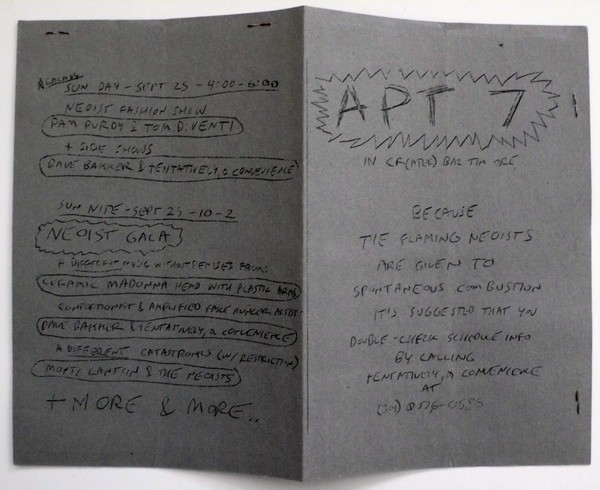 SUN DAY - SEPT 25 - 4:00 - 6:00
NEOIST FASHION SHOW
PAM PURDY & TOM D. VENTI
+ SIDE SHOWS
DAVE BAKKER & TENTATIVELY, a CONVENIENCE
SUN NITE - SEPT 25 - 10 - 2
NEOIST GALA
A DIFFERENT MUSIC WITHOUT FROM:
CERAMIC MADONNA HEAD WITH PLASTIC ARMS
CONTORTIONIST & AMPLIFIED FAKE
DAVE BAKKER & TENTATIVELY, a CONVENIENCE
A DIFFERENT CATASTRONICS (W/ RESTRICTION)
MONTY CANTSIN & THE NEOISTS
+ MORE & MORE..
APT 7
IN CR(ATER) BAL TIM ORE
BECAUSE
THE FLAMING NEOISTS
ARE GIVEN TO
SPONTANEOUS COMBUSTION
IT'S SUGGESTED THAT YOU
DOUBLE-CHECK SCHEDULE INFO
BY CALLING
TENTATIVELY, a CONVENIENCE
AT